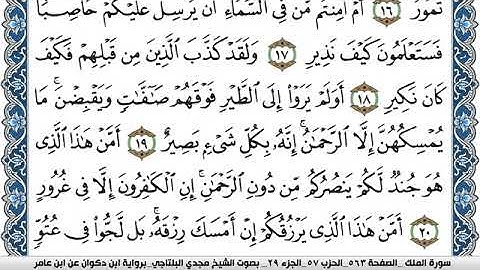 تَمُورُ ١٦ أَمۡ أَمِنتُم مَّن فِي ٱلسَّمَآءِ أَن يُرۡسِلَ عَلَيۡكُمۡ حَاصِبٗا
فَسَتَعۡلَمُونَ كَيۡفَ نَذِيرِ ١٧ وَلَقَدۡ كَذَّبَ ٱلَّذِينَ مِن قَبۡلِهِمۡ فَكَيۡفَ
كَانَ نَكِيرِ ١٨ أَوَلَمۡ يَرَوۡاْ إِلَى ٱلطَّيۡرِ فَوۡقَهُمۡ صَٰٓفَّٰتٖ وَيَقۡبِضۡنَۚ مَا
يُمۡسِكُهُنَّ إِلَّا ٱلرَّحۡمَٰنُۚ إِنَّهُۥ بِكُلِّ شَيۡءِۭ بَصِيرٌ ١٩ أَمَّنۡ هَٰذَا ٱلَّذِي
هُوَ جُندٞ لَّكُمۡ يَنصُرُكُم مِّن دُونِ ٱلرَّحۡمَٰنِۚ إِنِ ٱلۡكَٰفِرُونَ إِلَّا فِي غُرُورٍ
٢٠ أَمَّنۡ هَٰذَا ٱلَّذِي يَرۡزُقُكُمۡ إِنۡ أَمۡسَكَ رِزۡقَهُۥۚ بَل لَّجُّواْ فِي عُتُوّٖ
سورة الملك _الصفحة ٥٦٣_ الحزب ٥٧_الجزء ٢٩_ بصوت الشيخ مجدي البلتاجي_برواية ابن ذكوان عن ابن عامر